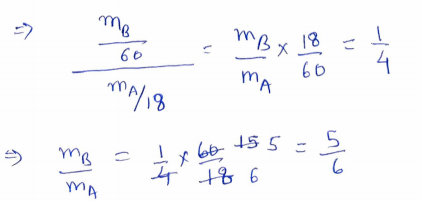 ⇒ (m_B / 60) / (m_A / 18) = m_B / m_A × 18 / 60 = 1 / 4
⇒ m_B / m_A = 1 / 4 × 60 15 5 / 18 6 = 5 / 6